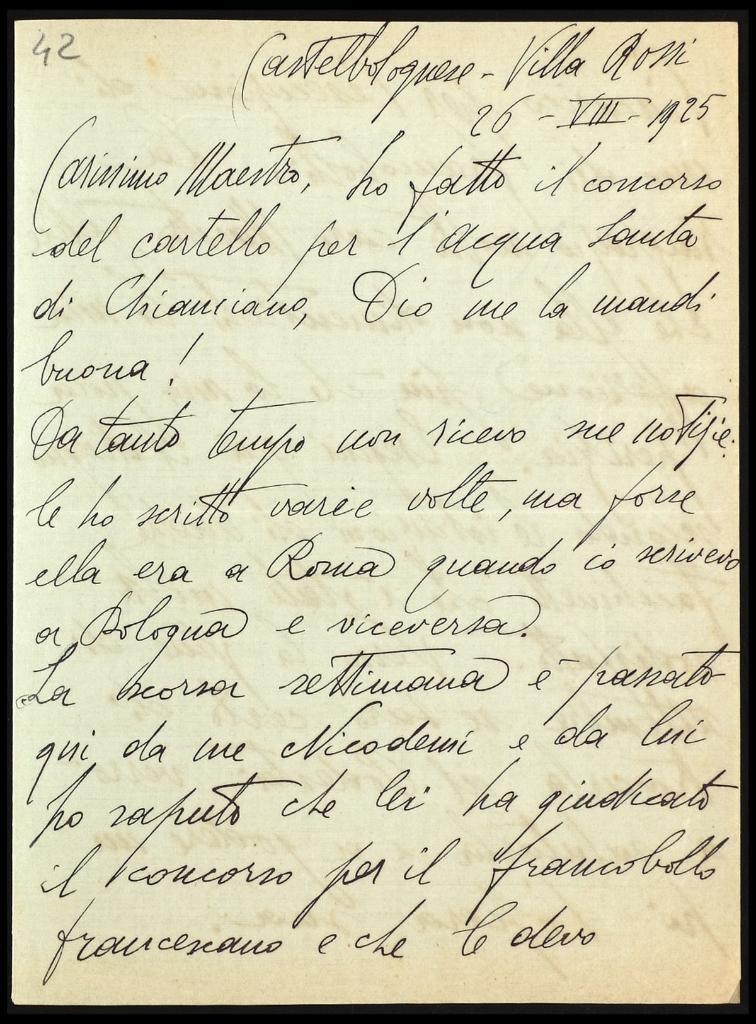 42
Castelbolognese - Villa Rossi
26 - VIII - 1925
Carissimo Maestro, ho fatto il concorso
del cartello per l'acqua santa
di Chianciano, Dio me la mandi
buona!
Da tanto tempo non ricevo sue notizie:
le ho scritto varie volte, ma forse
ella era a Roma quando io scrivevo
a Bologna e viceversa.
La scorsa settimana è passato
qui da me Nicodemi e da lui
ho saputo che lei ha giudicato
il concorso per il francobollo
francescano e che le devo